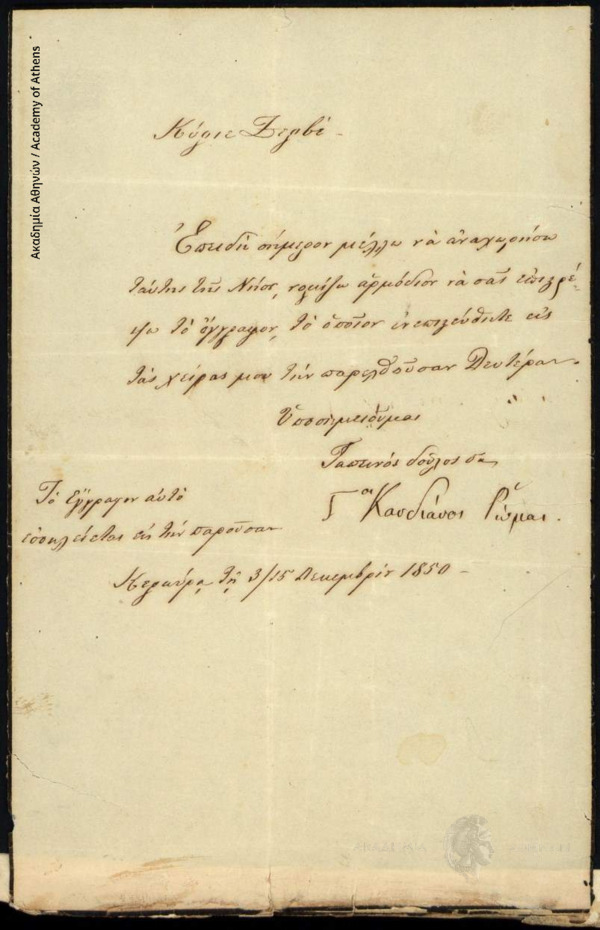 Ακαδημία Αθηνών / Academy of Athens
Κύριε Ζερβέ -
Ἐπειδὴ σήμερον μέλλω νὰ ἀναχωρήσω
ταύτης τῆς Νήσου, νομίζω ἁρμόδιον νὰ σᾶς ἐπιτρέ-
ψω τὸ ἔγγραφον, τὸ ὁποῖον ἐνεπιστεύθητε εἰς
τὰς χεῖρας μου τὴν παρελθοῦσαν Δευτέραν.
Ὑποσημειοῦμαι
Ταπεινὸς δοῦλος σας
Καντιάνος Ῥώμας.
Τὸ ἔγγραφον αὐτὸ
ἐσωκλείεται εἰς τὴν παροῦσαν
Κερκύρᾳ τῇ 3/15 Δεκεμβρίου 1850 -